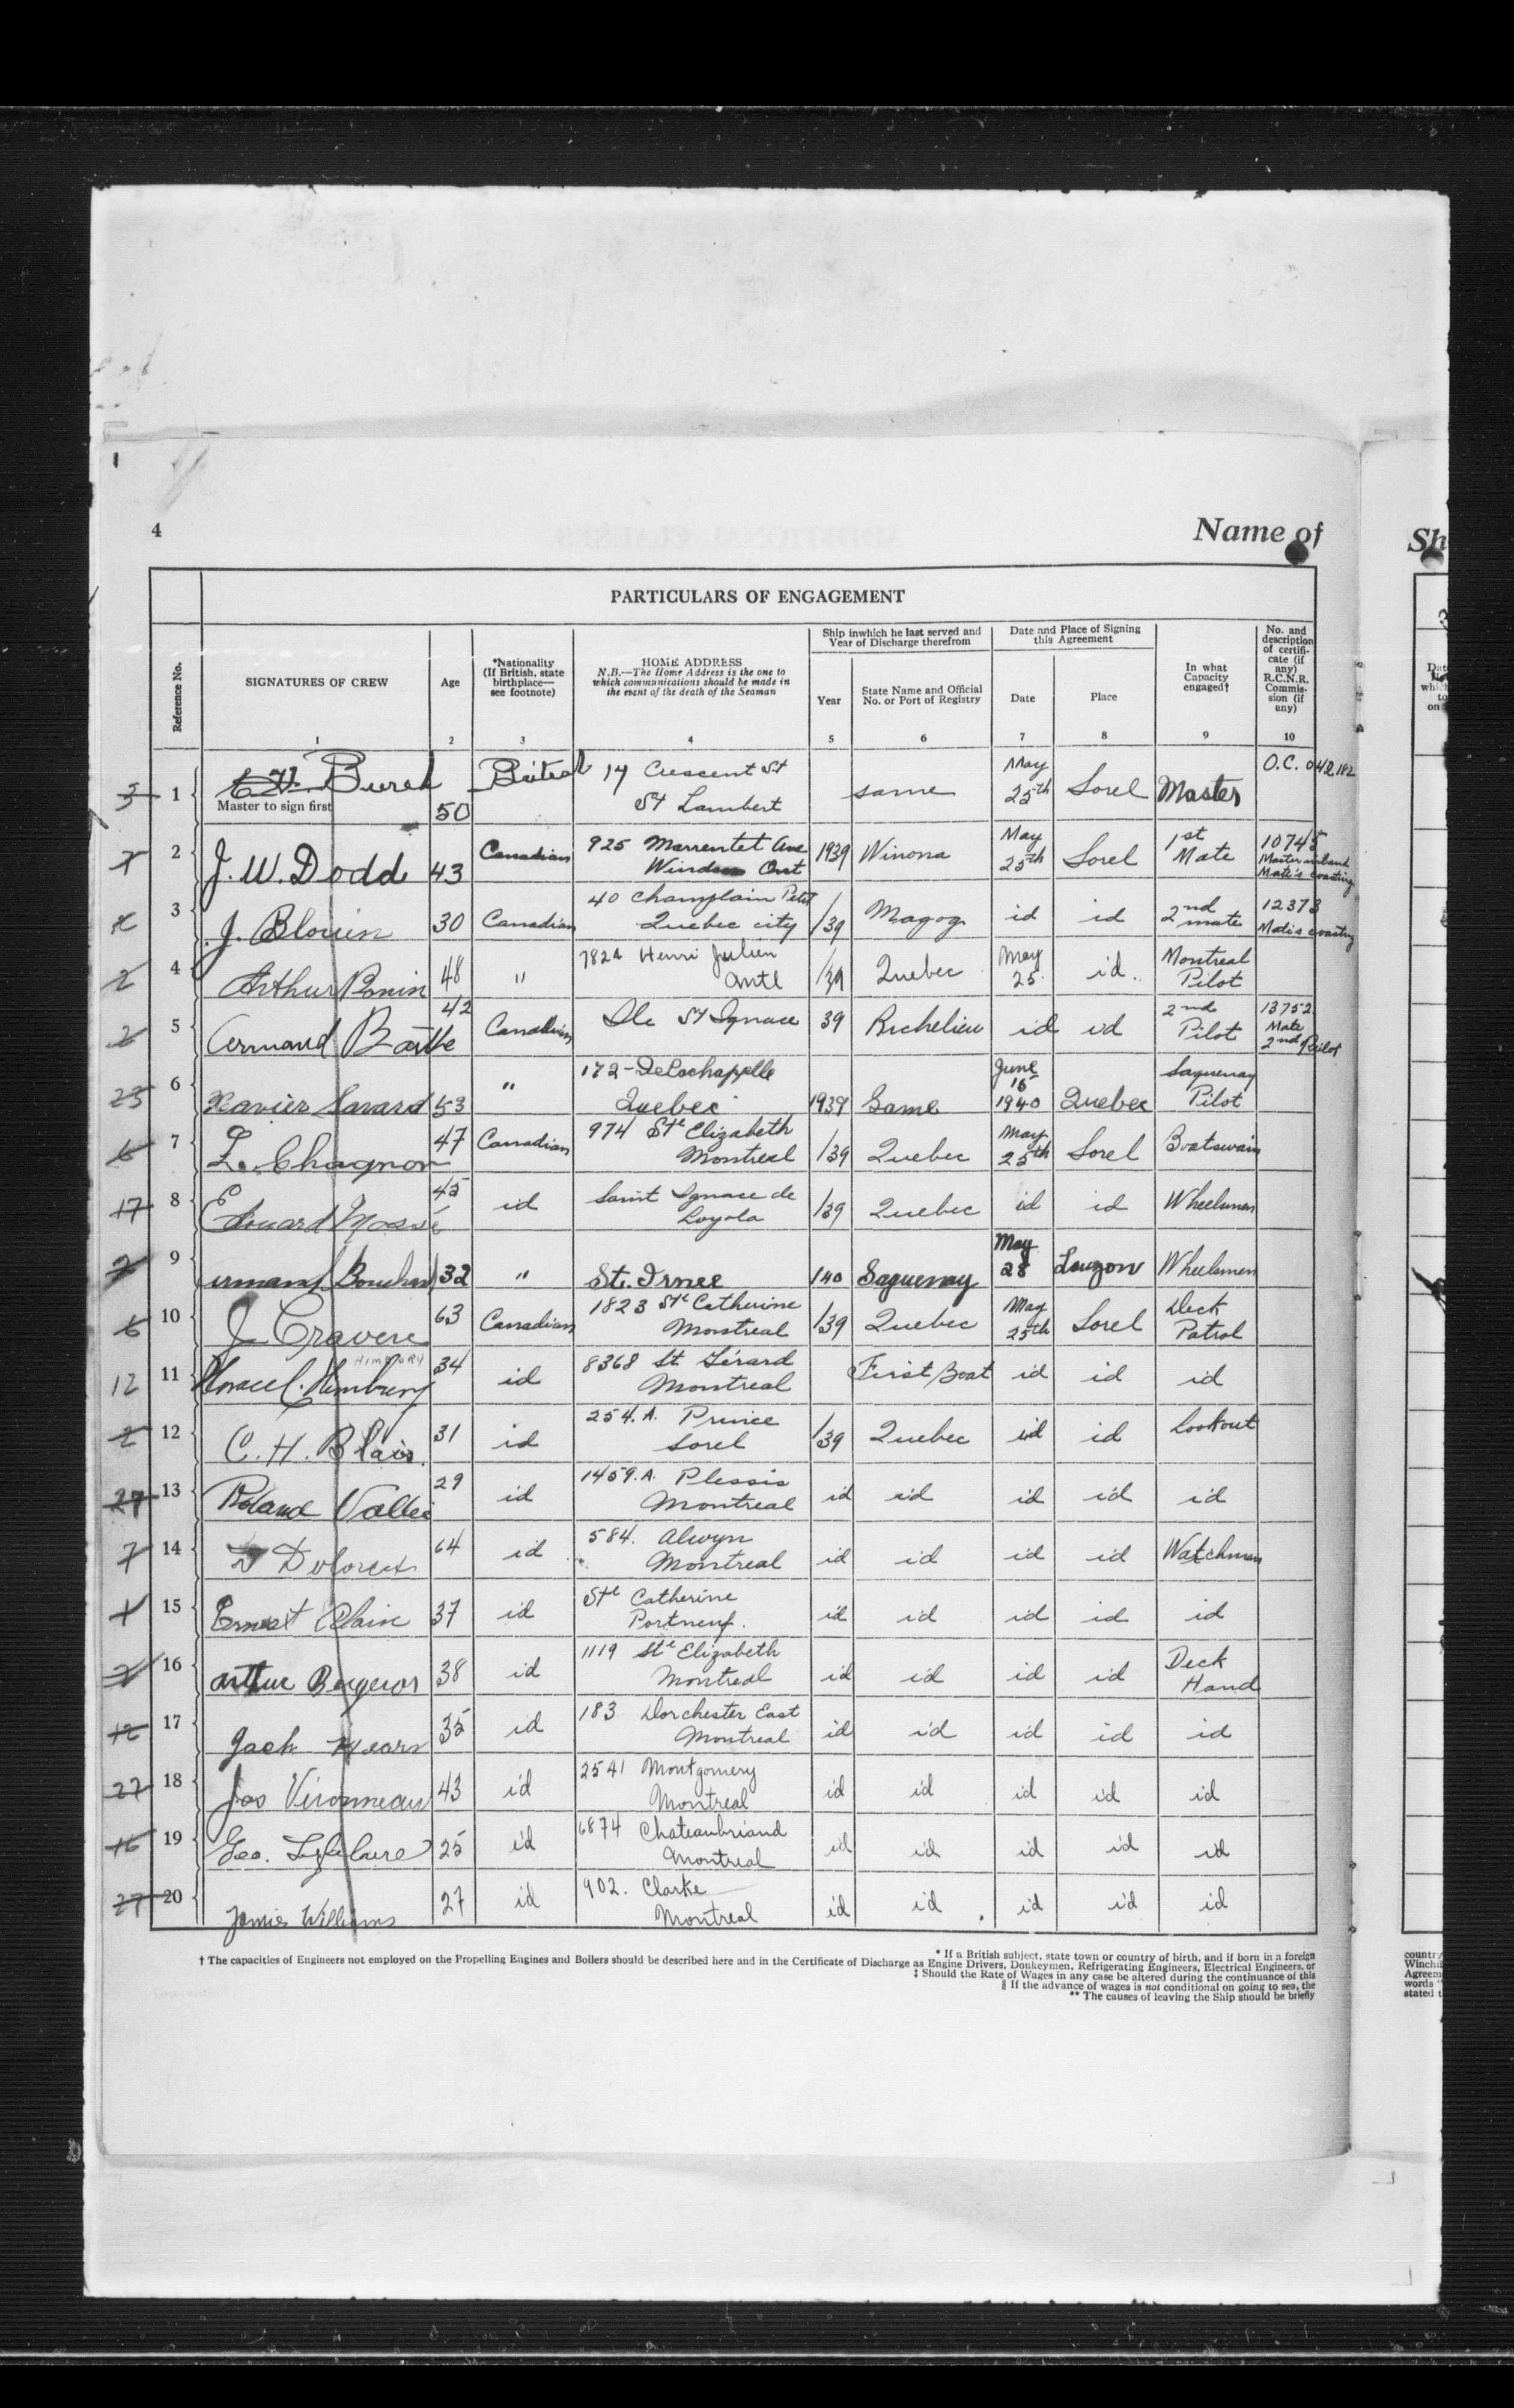 4
Name of
Sh
PARTICULARS OF ENGAGEMENT
Reference No.
SIGNATURES OF CREW
1
Age
2
*Nationality
(If British, state
birthplace—
see footnote)
3
HOME ADDRESS
N.B.—The Home Address is the one to
which communications should be made in
the event of the death of the Seaman
4
Ship inwhich he last served and
Year of Discharge therefrom
Year
5
State Name and Official
No. or Port of Registry
6
Date and Place of Signing
this Agreement
Date
7
Place
8
In what
Capacity
engaged†
9
No. and
description
of certifi-
cate (if
any)
R.C.N.R.
Commis-
sion (if
any)
10
1 Burch 50 14 Crescent St
St Lambert same May
25th Sorel Master O.C. 042182
Master to sign first
2 J. W. Dodd 43 Canadian 925 Marrentet Ave
Windsor Ont 1939 Winona May
25th Sorel 1st
Mate 10745
Master inland
Mate's coasting
3 J. Blouin 30 Canadian 40 Champlain
Quebec city /39 Magog id id 2nd
mate 12373
Mate's coasting
2 4 Arthur 48 " 7824 Henri Julien
Mtl /39 Quebec May
25 id Montreal
Pilot
2 5 Armand Barthe 42 Canadian Ile St Ignace 39 Richelieu id id 2nd
Pilot 13752
Mate
2nd Pilot
23 6 Xavier Savard 53 " 172 - DeLachapelle
Quebec 1939 Same June
15
1940 Quebec Saguenay
Pilot
6 7 L. Chagnon 47 Canadian 974 Ste Elizabeth
Montreal /39 Quebec May
25th Sorel Boatswain
17 8 Edouard Massé 45 id Saint Ignace de
Loyola /39 Quebec id id Wheelsman
9 32 " St. Irnee /40 Saguenay May
28 Lauzon Wheelsmen
6 10 J 63 Canadian 1823 Ste Catherine
Montreal /39 Quebec May
25th Sorel Deck
Patrol
12 11 Horace C. Himbury 34 id 8368 St. Gérard
Montreal First Boat id id id
2 12 C. H. Blais 31 id 254. A. Prince
Sorel /39 Quebec id id Lookout
27 13 Roland Vallée 29 id 1459. A. Plessis
Montreal id id id id id
7 14 64 id 584. Alwyn
Montreal id id id id Watchman
15 Ernest 37 id Ste Catherine
Portneuf. id id id id id
16 Bergeron 38 id 1119 Ste Elizabeth
Montreal id id id id Deck
Hand
12 17 Jack Hearn 35 id 183 Dorchester East
Montreal id id id id id
27 18 Jos Vironneau 43 id 2541 Montgomery
Montreal id id id id id
16 19 Geo. Lefebvre 25 id 6874 Chateaubriand
Montreal id id id id id
27 20 Williams 27 id 902. Clarke
Montreal id id id id id
* If a British subject, state town or country of birth, and if born in a foreign
† The capacities of Engineers not employed on the Propelling Engines and Boilers should be described here and in the Certificate of Discharge as Engine Drivers, Donkeymen, Refrigerating Engineers, Electrical Engineers, or
‡ Should the Rate of Wages in any case be altered during the continuance of this
‖ If the advance of wages is not conditional on going to sea, the
** The causes of leaving the Ship should be briefly
country
Agreem
words
stated t